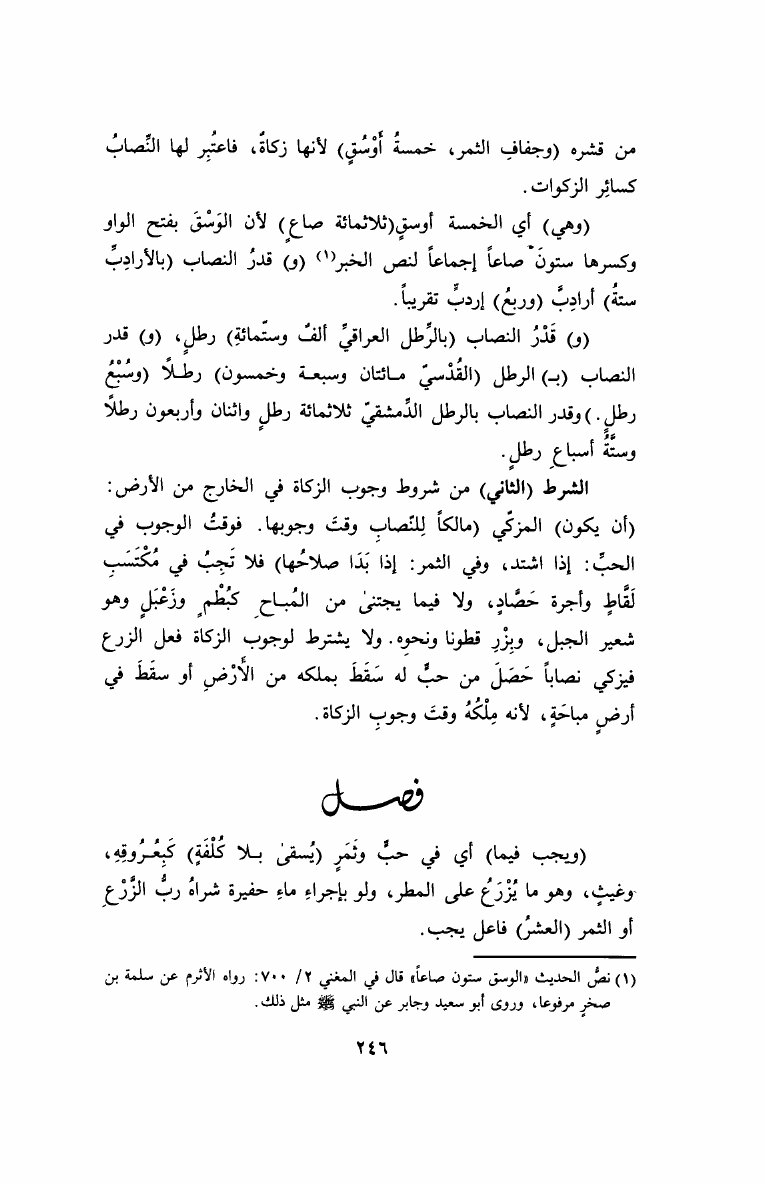 من قشره (وجفافِ الثمر، خمسةُ أَوْسُقٍ) لأنها زكاةٌ، فاعتُبِر لها النِّصابُ
كسائِر الزكوات.
(وهي) أي الخمسة أوسقٍ(ثلاثمائة صاعٍ) لأن الوَسْقَ بفتح الواو
وكسرها ستونَ صاعاً إجماعاً لنص الخبر(١) (و) قدرُ النصاب (بالأرادِبِّ
ستةُ) أرادِبَّ (وربعُ) إردبٍّ تقريباً.
(و) قَدْرُ النصاب (بالرِّطل العراقيِّ ألفٌ وستّمائةِ) رطلٍ، (و) قدر
النصاب (بـ) الرطل (القُدْسيّ مـائتان وسبعـة وخمسون) رطـلًا (وسُبْعُ
رطلٍ.) وقدر النصاب بالرطل الدِّمشقيّ ثلاثمائة رطلٍ واثنان وأربعون رطلًا
وستَّةُ أسباعِ رطلٍ.
الشرط (الثاني) من شروط وجوب الزكاة في الخارج من الأرض:
(أن يكون) المزكّي (مالكاً لِلنّصابِ وقتَ وجوبها. فوقتُ الوجوب في
الحبِّ: إذا اشتد، وفي الثمر: إذا بَدَا صلاحُها) فلا تَجِبُ في مُكْتَسَبِ
لَقَّاطٍ وأجرة حَصَّادٍ، ولا فيما يجتنىٰ من المُبـاحِ كبُطْمٍ وزَعْبَلٍ وهو
شعير الجبل، وبِزْرِ قطونا ونحوِه. ولا يشترط لوجوب الزكاة فعل الزرع
فيزكي نصاباً حَصَلَ من حبٍّ له سَقَطَ بملكه من الأَرْضِ أو سقَطَ في
أرضٍ مباحَةٍ، لأنه مِلْكُهُ وقتَ وجوبِ الزكاة.
فصـــل
(ويجب فيما) أي في حبٍّ وثَمَرٍ (يُسقىٰ بـلا كُلْفَةٍ) كَبِعُـرُوقِهِ،
وغيثٍ، وهو ما يُزْرَعُ على المطر، ولو بإجراءِ ماءِ حفيرة شراهُ ربُّ الزَّرْعِ
أو الثمر (العشرُ) فاعل يجب.
(١) نصُّ الحديث «الوسق ستون صاعاً» قال في المغني ٢/ ٧٠٠: رواه الأثرم عن سلمة بن
صخرٍ مرفوعا، وروى أبو سعيد وجابر عن النبي ﷺ مثل ذلك.
٢٤٦